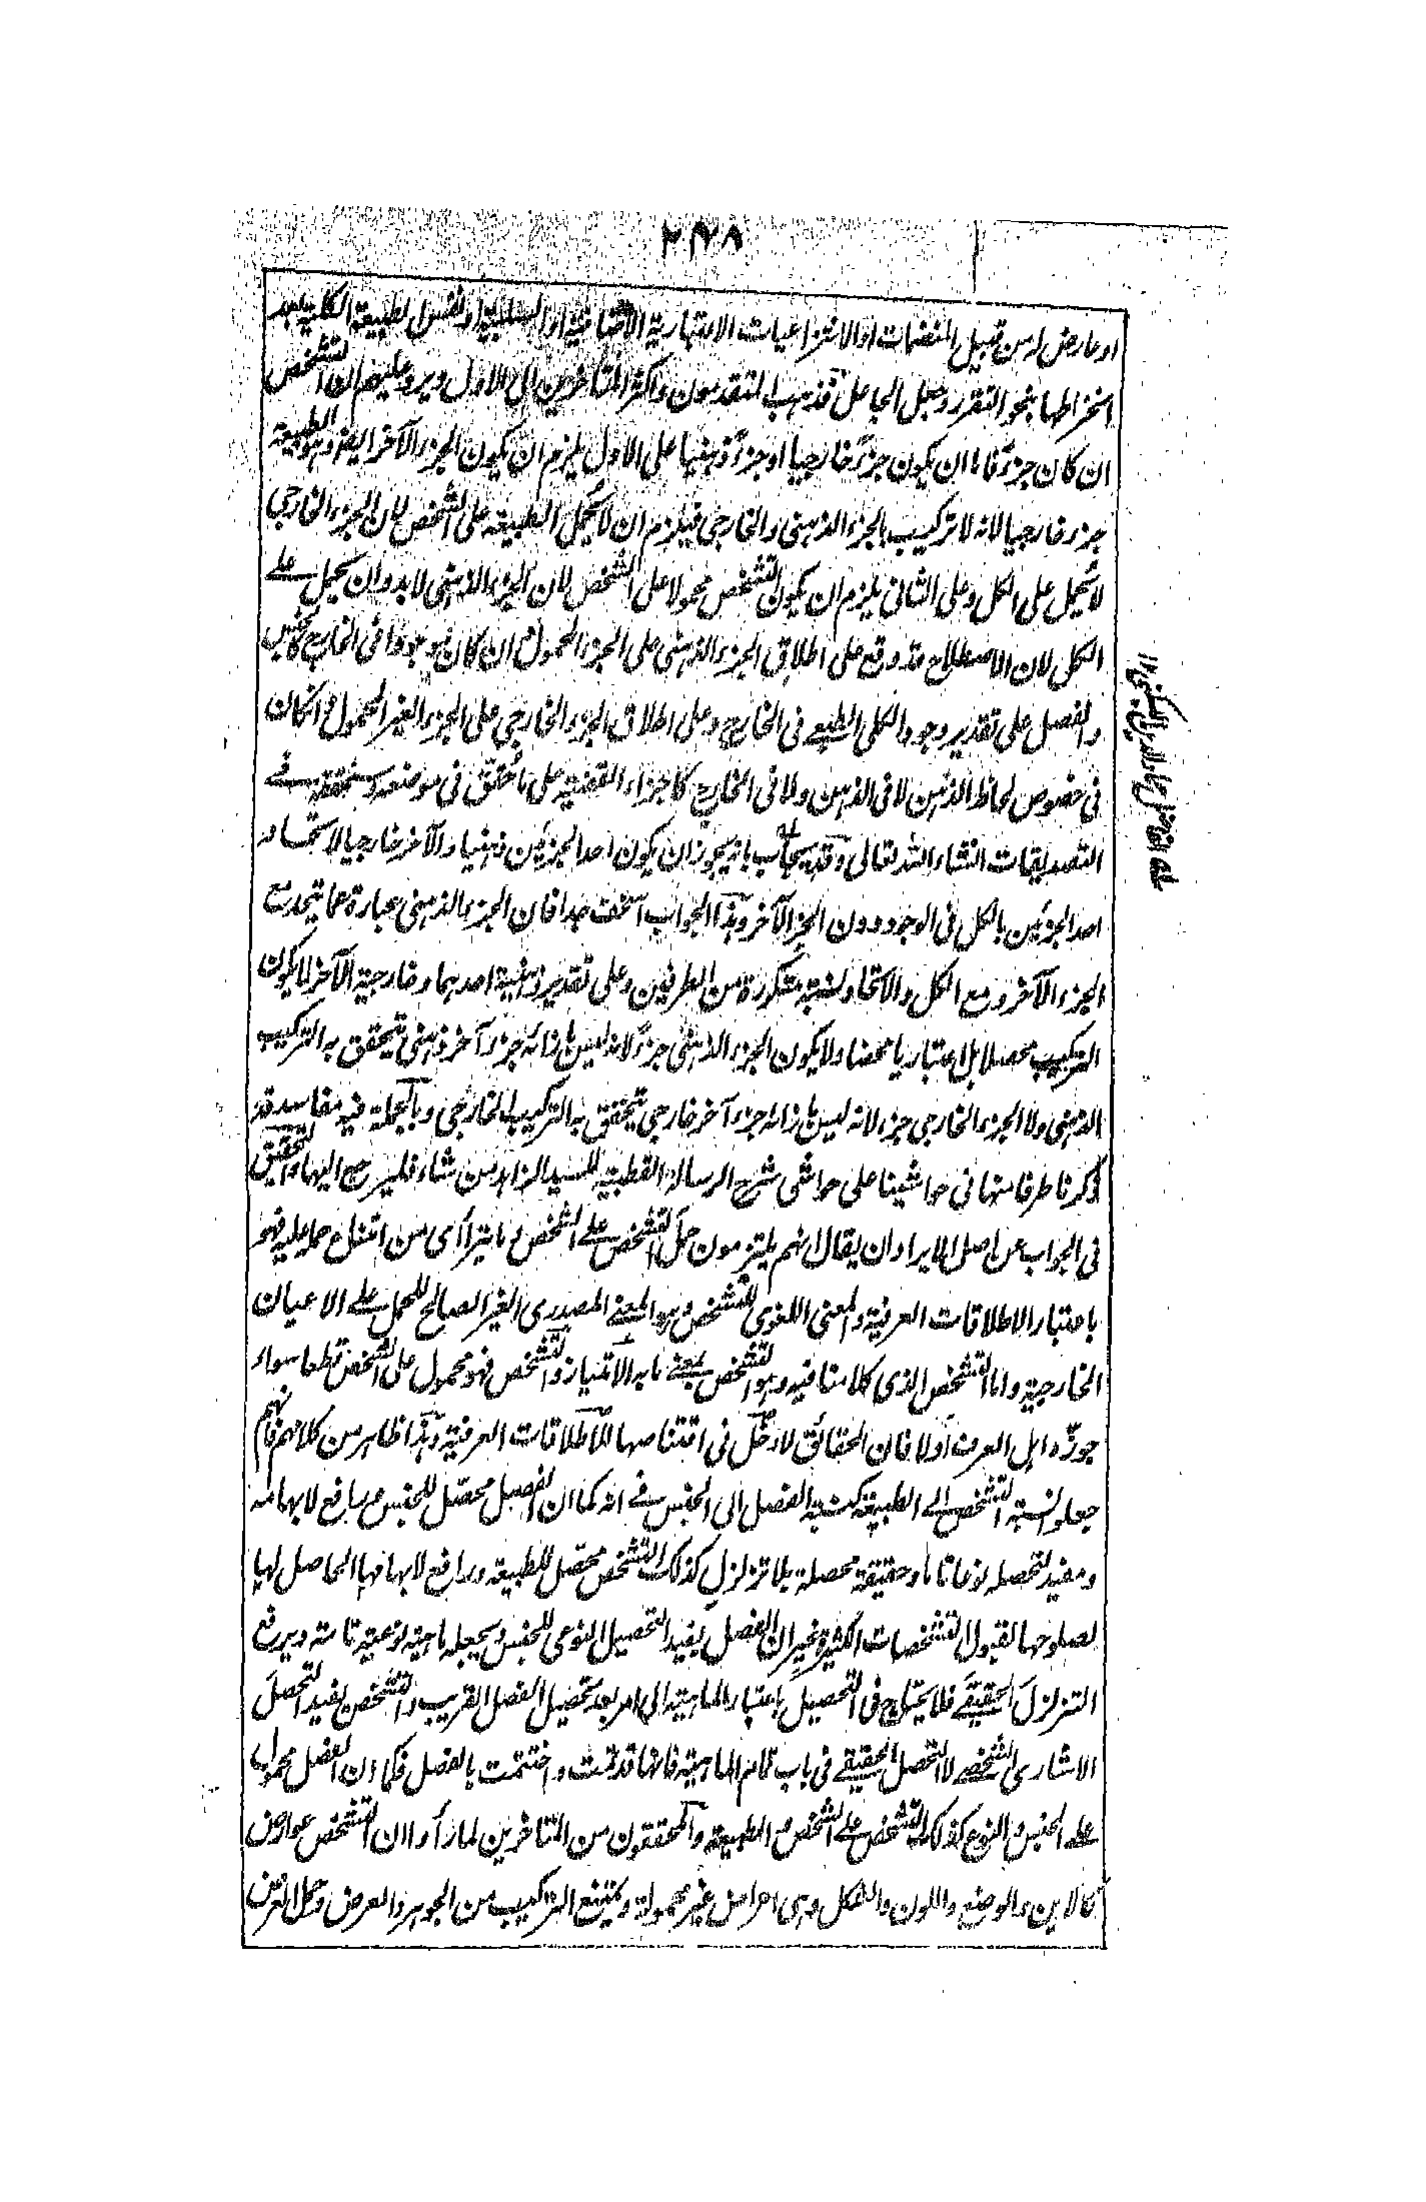 ٢٤٨
او عارض له من قبيل المنضمات او الانتزاعيات الاعتبارية الاضافية او السلبية او نفس الطبيعة الكلية بعد
انخراطها بنحو التقرر وجعل الجاعل فذهب المتقدمون واكثر المتأخرين الى الاول ويرد عليهم ان التشخص
ان كان جزءً فاما ان يكون جزءً خارجيا او جزءً ذهنيا على الاول يلزم ان يكون الجزء الآخر ايضا وهو الطبيعة
جزء خارجيا لانه لا تركيب بالجزء الذهنى والخارجى فيلزم ان لا يحمل الطبيعة على الشخص لان الجزء الخارجى
لا يحمل على الكل وعلى الثانى يلزم ان يكون التشخص محمولا على الشخص لان الجزء الذهنى لابد وان يحمل على
الكل لان الاصطلاح قد وقع على اطلاق الجزء الذهنى على الجزء المحمول وان كان موجودا فى الخارج كالجنس
والفصل على تقدير وجود الكلى الطبيعى فى الخارج وعلى اطلاق الجزء الخارجى على الجزء الغير المحمول وان كان
فى خصوص لحاظ الذهن لا فى الذهن ولا فى الخارج كاجزاء القضية على ما حقق فى موضعه وسنحققه فى
التصديقات انشاء الله تعالى وقد يجاب بانه يجوز ان يكون احد الجزئين ذهنيا والآخر خارجيا لاتحاد
احد الجزئين بالكل فى الوجود دون الجزء الآخر وهذا الجواب اسخف جدا فان الجزء الذهنى عبارة عما يتحد مع
الجزء الآخر ومع الكل والاتحاد نسبة متكررة من الطرفين وعلى تقدير ذهنية احدهما وخارجية الآخر لا يكون
التركيب محصلا بل اعتباريا محضا ولا يكون الجزء الذهنى جزءً لانه ليس بازائه جزء آخر ذهنى يتحقق به التركيب
الذهنى ولا الجزء الخارجى جزء لانه ليس بازائه جزء آخر خارجى يتحقق به التركيب الخارجى وبالجملة فيه مفاسد قد
ذكرنا طرفا منها فى حواشينا على حواشى شرح الرسالة القطبية للسيد الزاهد من شاء فليرجع اليها والتحقيق
فى الجواب عن اصل الايراد ان يقال انهم يلتزمون حمل التشخص على الشخص وما يترا أى من امتناع حمله عليه فهو
باعتبار الاطلاقات العرفية والمعنى اللغوى للتشخص وهو المعنى المصدرى الغير الصالح للحمل على الاعيان
الخارجية واما التشخص الذى كلامنا فيه وهو التشخص بمعنى ما به الامتياز والتشخص فهو محمول على الشخص قطعا سواء
جوزه اهل العرف أو لا فان الحقائق لا دخل فى اقتناصها للاطلاقات العرفية وهذا ظاهر من كلامهم فانهم
جعلوا نسبة التشخص الى الطبيعة كنسبة الفصل الى الجنس فى انه كما ان الفصل محصل للجنس ورافع لابهامه
ومفيد لتحصله نوعا تاما وحقيقة محصلة بلا تزلزل كذلك التشخص محصل للطبيعة ورافع لابهامها الحاصل لها
لصلوحها لقبول التشخصات الكثيرة غير ان الفصل يفيد التحصيل النوعى للجنس ويجعله ماهية نوعية تامة ويرفع
التزلزل الحقيقى فلا يحتاج فى التحصيل باعتبار الماهية الى امر بعد تحصيل الفصل القريب والتشخص يفيد التحصل
الاشارى الشخصى لا التحصل الحقيقى فى باب تمام الماهية فانها قد تمت واختتمت بالفصل فكما ان الفصل محمول
على الجنس والنوع كذلك التشخص على الشخص والطبيعة والمحققون من المتأخرين لما رأوا ان التشخص عوارض
كالاين والوضع واللون والشكل وهى اعراض غير محمولة ويمتنع التركيب من الجوهر والعرض وحمل العرض